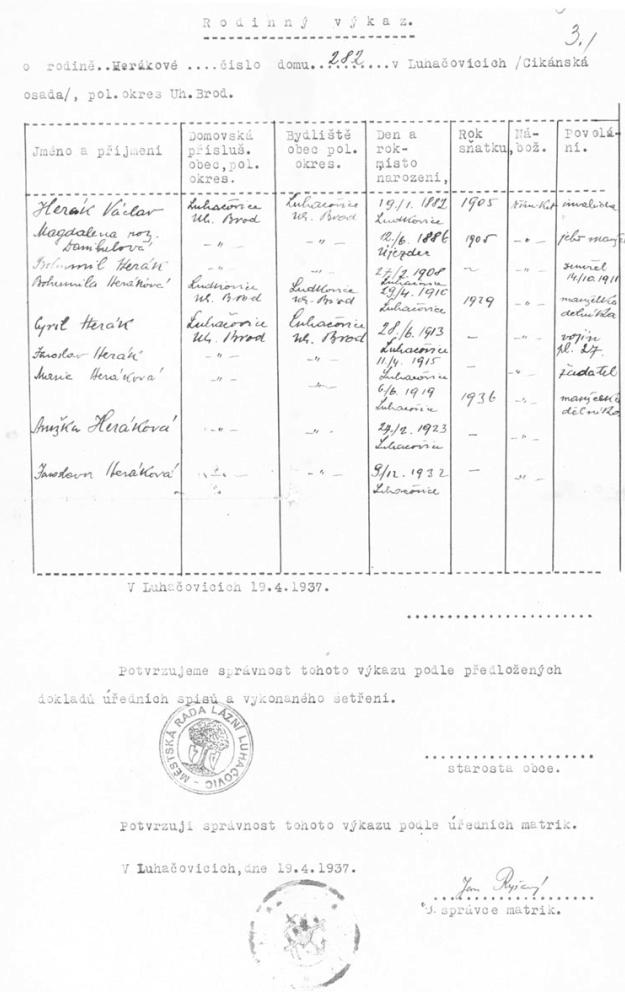 3./
Rodinný výkaz.
o rodině..Herákové ....číslo domu..282....v Luhačovicích /Cikánská
osada/, pol.okres Uh.Brod.
Jméno a příjmení | Domovská přísluš. obec,pol. okres. | Bydliště obec pol. okres. | Den a rok- místo narození, | Rok sňatku, | Ná- bož. | Povolá ní.
Herák Václav | Luhačovice Uh. Brod | Luhačovice Uh. Brod | 19./1. 1882 Ludkovice | 1905 | řím. kat | invalida
Magdalena roz. Danihelová | -"- | -"- | 12./6. 1886 Újezdec | 1905 | -"-
Bohumil Herák | -"- | -"- | 27/2. 1908 Luhačovice | – | -"- | zemřel 14/10.
Bohumila Heráková | Ludkovice Uh. Brod | Ludkovice Uh. Brod | 29/4. 1910 Luhačovice | 1929 | -"- | manželka dělníka
Cyril Herák | Luhačovice Uh. Brod | Luhačovice Uh. Brod | 28./6. 1913 Luhačovice | – | -"- | vojín pl. 27.
Jaroslav Herák | -"- | -"- | 11./4. 1915 Luhačovice | – | "-
Marie Heráková | -"- | -"- | 6/6. 1919 Luhačovice | 1936 | -"- | manželka dělníka
Anežka Heráková | -"- | -"- | 24/2. 1923 Luhačovice | – | -"-
Jaroslava Heráková | -"- | -"- | 9/12. 1932 Luhačovice | – | -"-
V Luhačovicích 19.4.1937.
Potvrzujeme správnost tohoto výkazu podle předložených
dokladů úředních spisů a vykonaného šetření.
MĚSTSKÁ RADA LÁZNÍ LUHAČOVIC
starosta obce.
Potvrzuji správnost tohoto výkazu podle úředních matrik.
V Luhačovicích,dne 19.4.1937.
Jan
správce matrik.